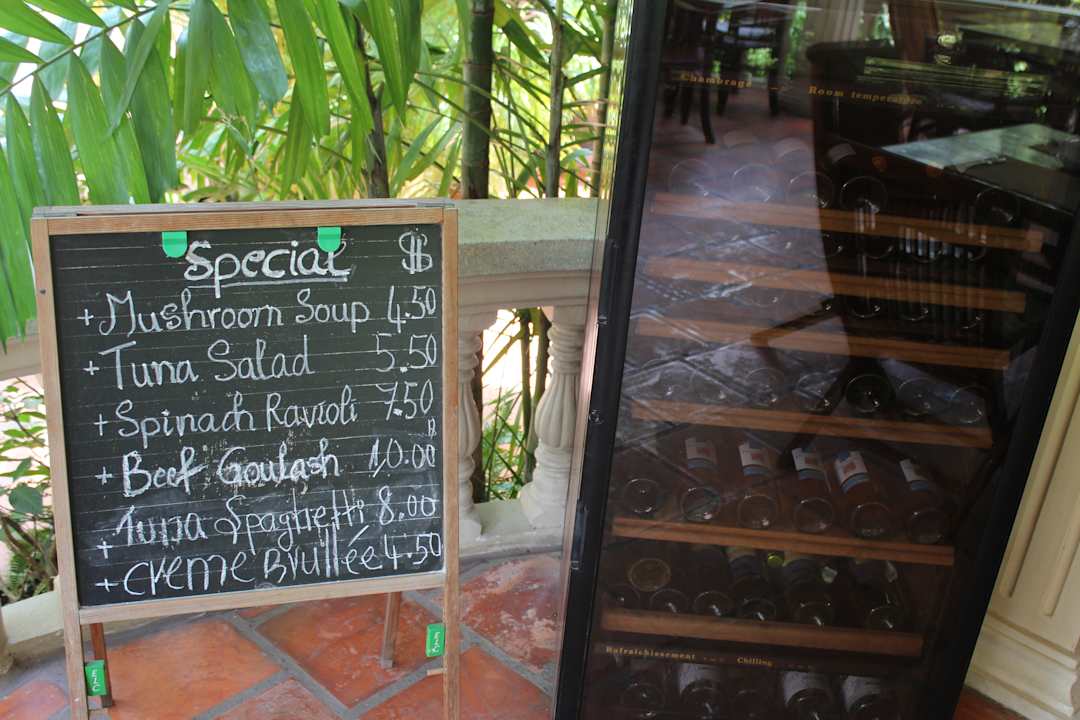 Special $
+ Mushroom Soup 4.50
+ Tuna Salad 5.50
+ Spinach Ravioli 7.50
+ Beef Goulash 10.00
+ Tuna Spaghetti 8.00
+ Creme Brullée 4.50
ELC
ELC
Chambrage Room temperature
Rafraîchissement Chilling